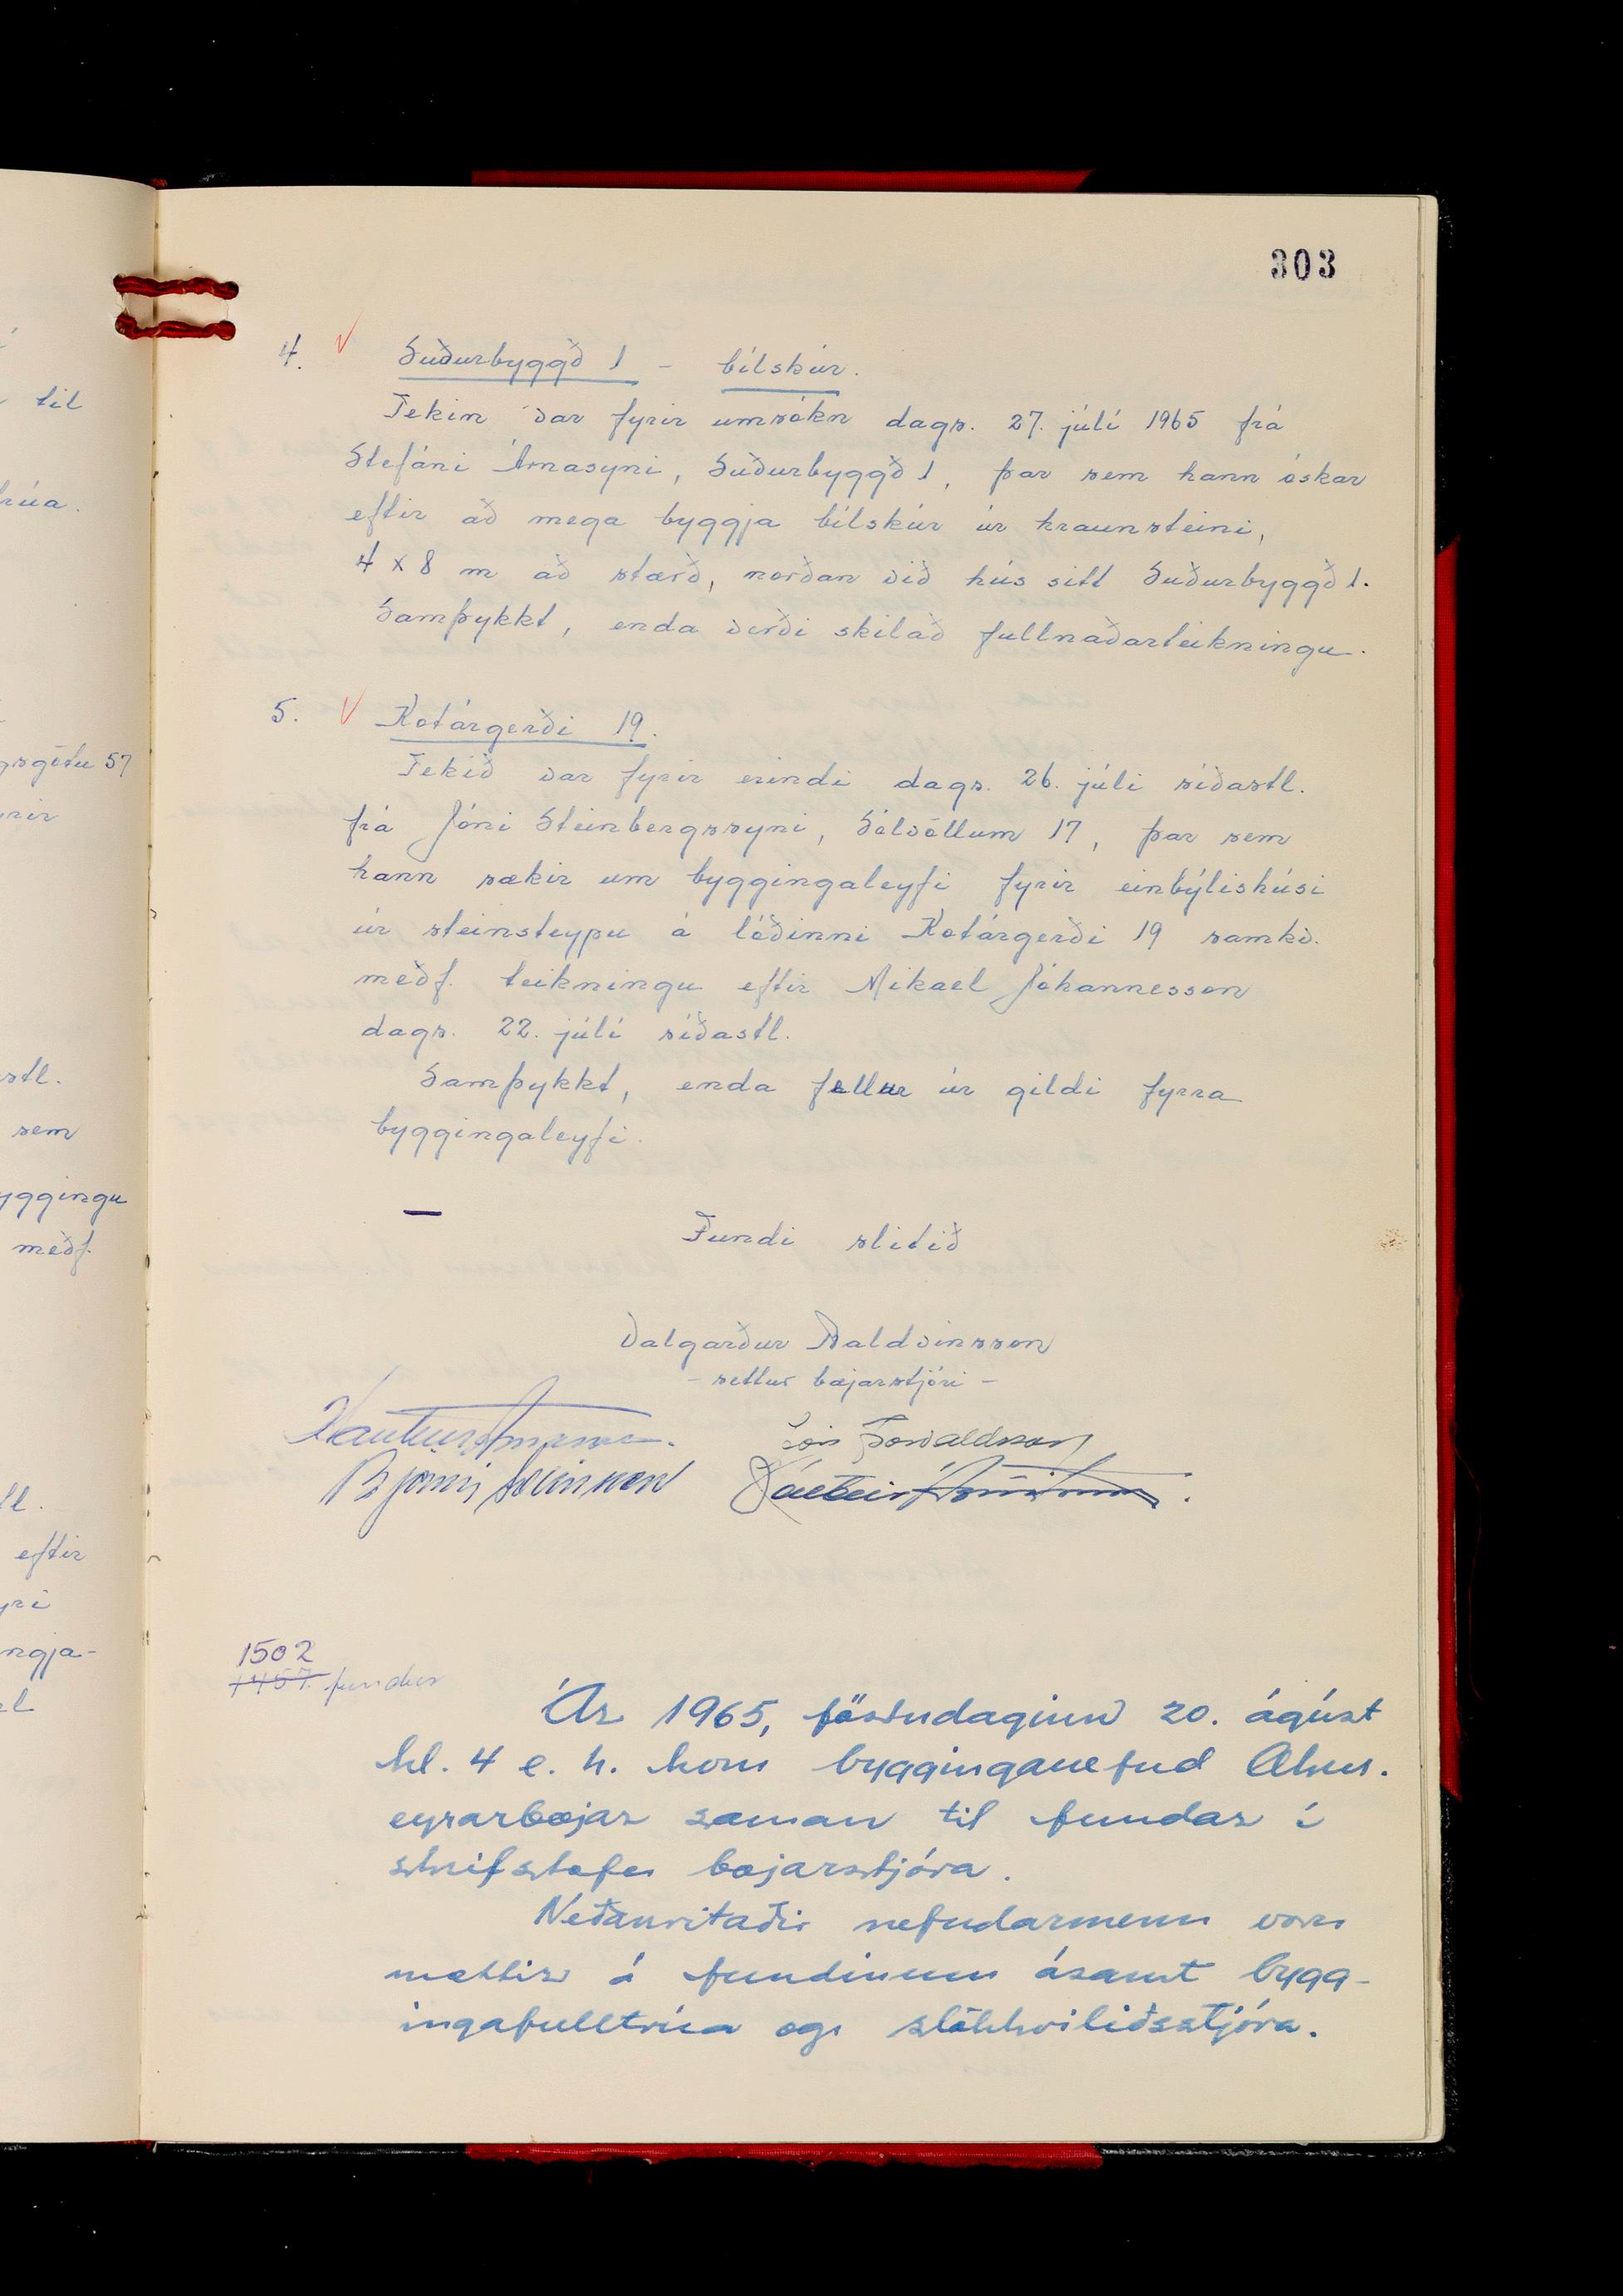 til
trúa.
gsgötu 57
rir
stl.
sem
yggingu
meðf.
tl.
eftir
yri
ngja-
el
303
4. √ Suðurbyggð 1 - bílskúr.
Tekin var fyrir umsókn dags. 27. júlí 1965 frá
Stefáni Árnasyni, Suðurbyggð 1, þar sem hann óskar
eftir að mega byggja bílskúr úr hraunsteini,
4 x 8 m að stærð, norðan við hús sitt Suðurbyggð 1.
Samþykkt, enda verði skilað fullnaðarteikningu.
5. √ Kotárgerði 19.
Tekið var fyrir erindi dags. 26. júlí síðastl.
frá Jóni Steinbergssyni, Sólvöllum 17, þar sem
hann sækir um byggingaleyfi fyrir einbýlishúsi
úr steinsteypu á lóðinni Kotárgerði 19 samkv.
meðf. teikningu eftir Mikael Jóhannesson
dags. 22. júlí síðastl.
Samþykkt, enda fellur úr gildi fyrra
byggingaleyfi.
— Fundi slitið
Valgarður Baldvinsson
- settur bæjarstjóri -
Haukur Árnason. Jón Þorvaldsson
Bjarni Sveinsson
1502
1457. fundur
Ár 1965, föstudaginn 20. ágúst
kl. 4 e. h. kom bygginganefnd Akur-
eyrarbæjar saman til fundar í
skrifstofu bæjarstjóra.
Neðanritaðir nefndarmenn voru
mættir á fundinum ásamt bygg-
ingafulltrúa og slökkviliðsstjóra.